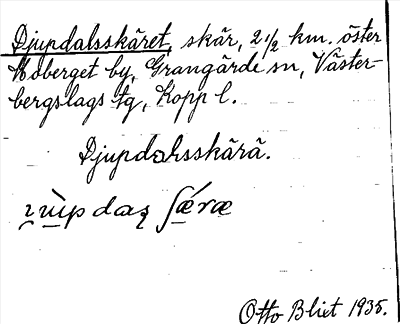 Djupdalsskäret, skär, 2 1/2 km. öster
Moberget by, Grangärde sn, Väster-
bergslags tg, Kopp l.
Djupdalsskärä.
Otto Blixt 1935.